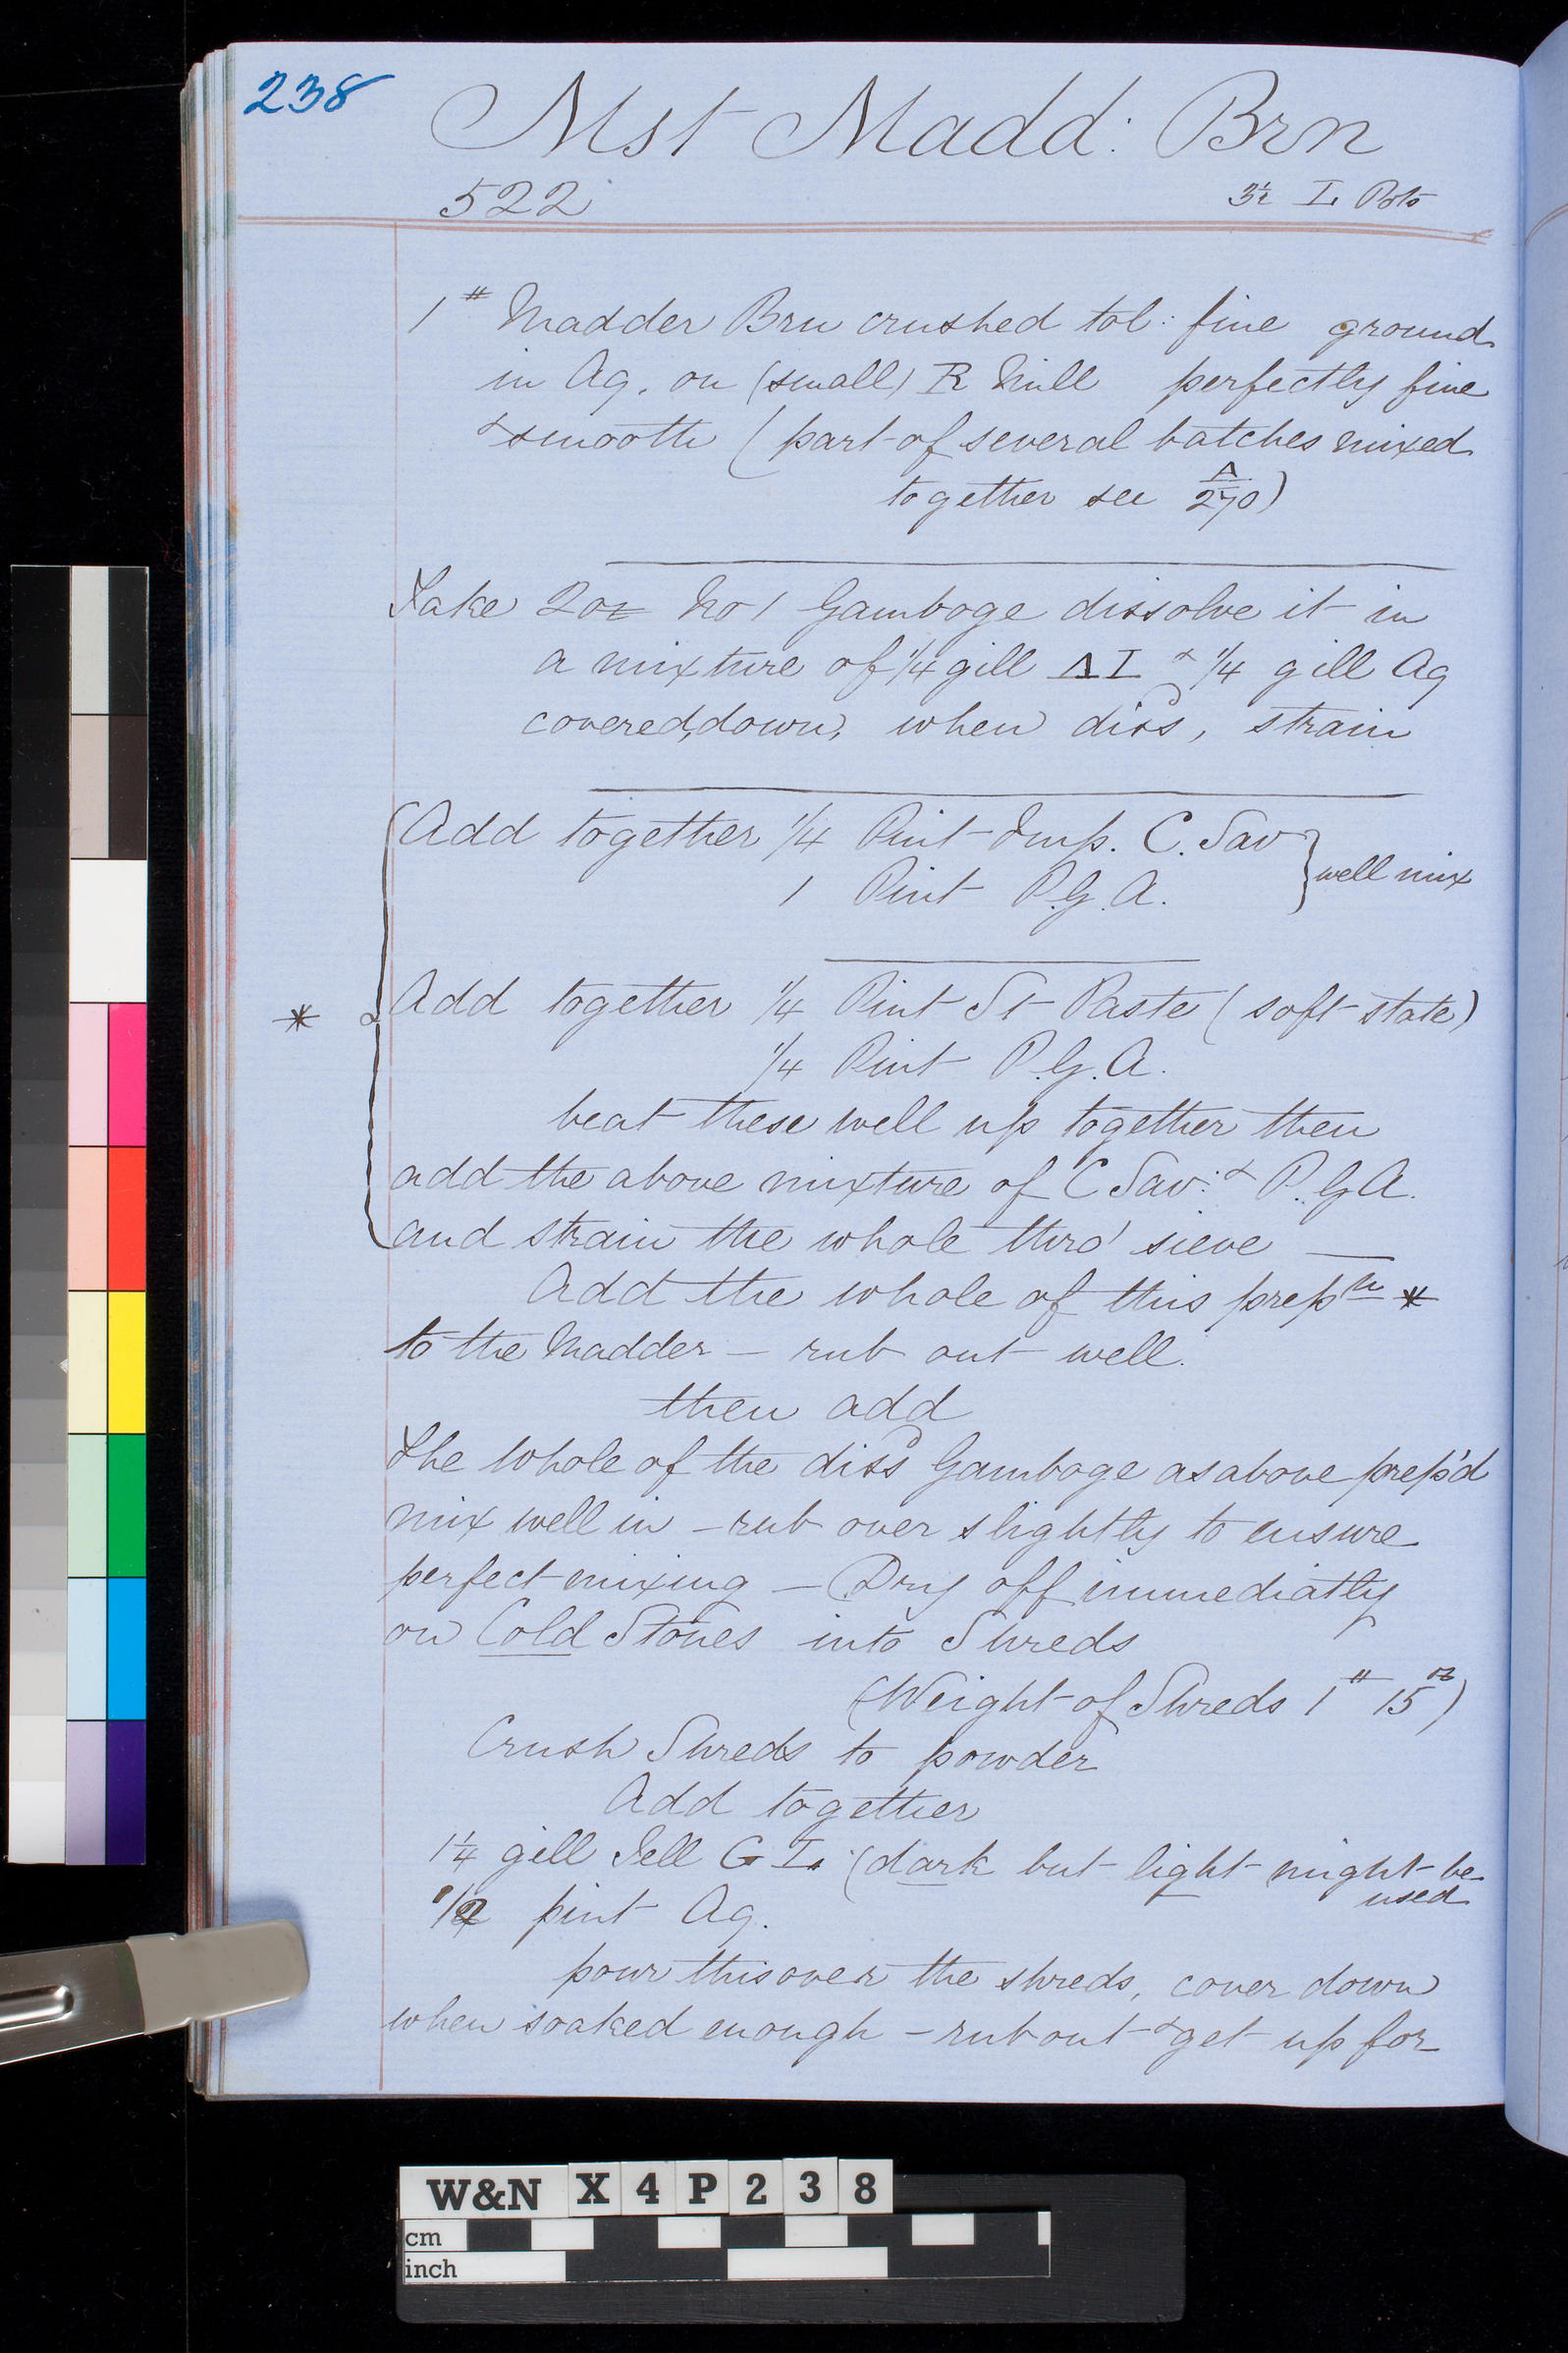 238
Mst Madd: Brn
522 3½ L Pots
1 # Madder Brn crushed tol: fine ground
in Aq. on (small) R Mill perfectly fine
& smooth (part of several batches mixed
together see Δ/270)
Take 2oz No 1 Gamboge dissolve it in
a mixture of 1/4 gill Δ I & 1/4 gill Aq
covered down, when dissd, strain
Add together 1/4 Pint Imp. C. Sav
1 Pint P.G.A. } well mix
* & Add together 1/4 Pint St Paste (soft state)
1/4 Pint P.G.A.
beat these well up together then
add the above mixture of C Sav: & P.G A.
and strain the whole thro' sieve —
Add the whole of this prepn *
to the Madder — rub out well.
then add
The whole of the dissd Gamboge as above prep'd
mix well in — rub over slightly to ensure
perfect mixing — Dry off immediatly
on Cold Stones into Shreds
(Weight of Shreds 1 # 15 oz)
Crush Shreds to powder
Add together
1¼ gill Jell G I. (dark but light might be
used
1/2 pint Aq.
pour this over the shreds, cover down
when soaked enough — rub out & get up for
W&N X 4 P 2 3 8
cm
inch